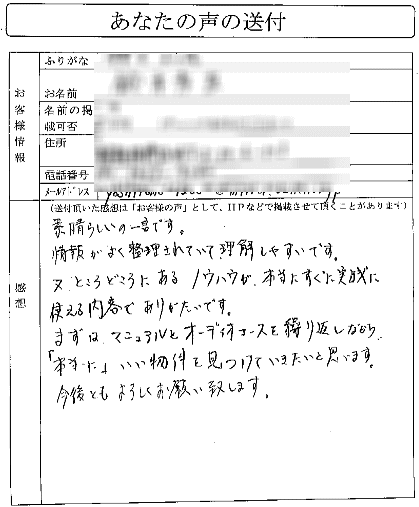 あなたの声の送付
お客様情報
ふりがな
お名前
名前の掲載可否
住所
電話番号
メールアドレス
(送付頂いた感想は「お客様の声」として、HPなどで掲載させて頂くことがあります)
感想
素晴らしいの一言です。
情報がよく整理されていて理解しやすいです。
又、ところどころにあるノウハウが、本当にすぐに実践に
使える内容でありがたいです。
まずは、マニュアルとオーディオコースを繰り返しながら、
「本当に」いい物件を見つけていきたいと思います。
今後ともよろしくお願い致します。